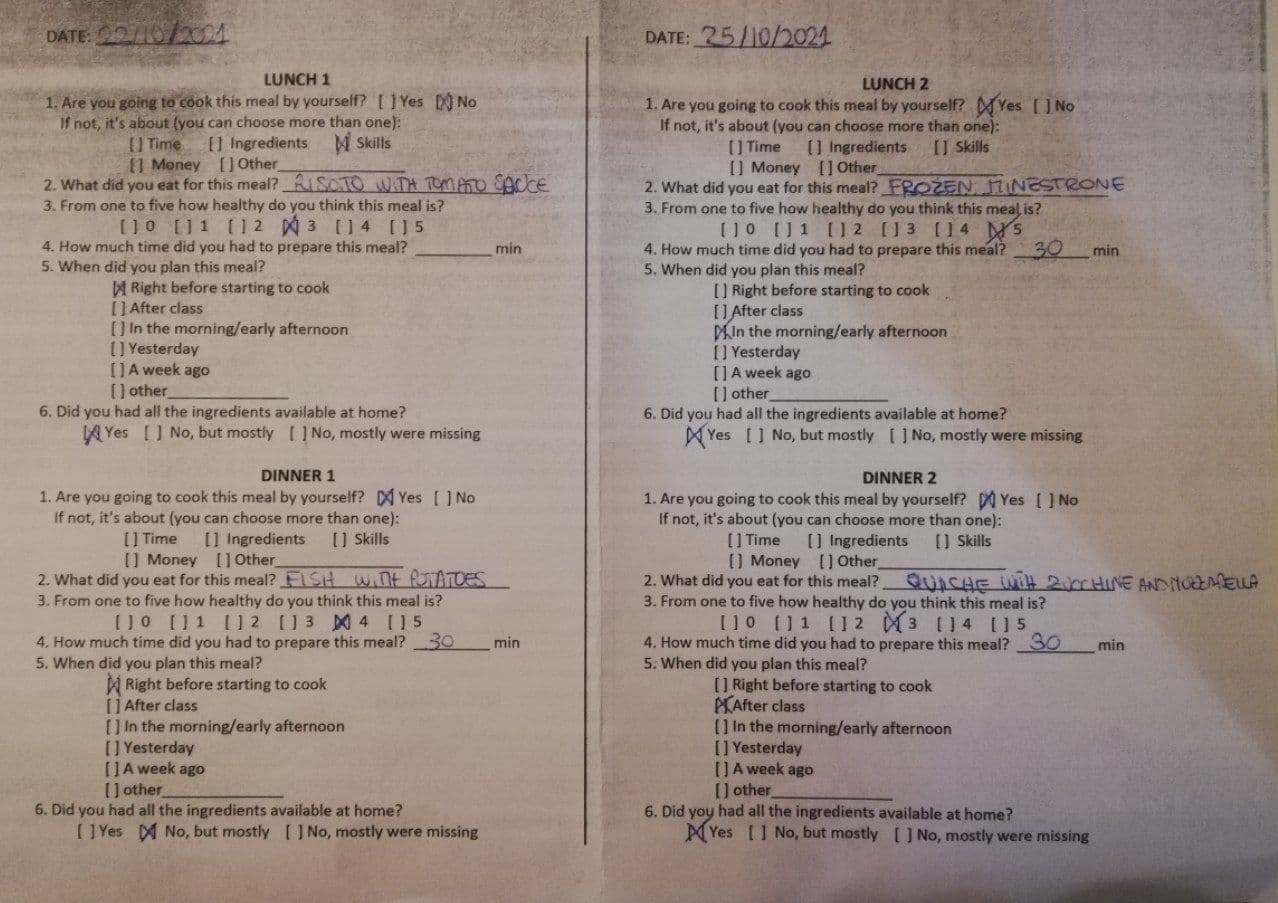 DATE: 22/10/2021
LUNCH 1
1. Are you going to cook this meal by yourself? [ ] Yes [X] No
If not, it's about (you can choose more than one):
[ ] Time [ ] Ingredients [X] Skills
[ ] Money [ ] Other____________
2. What did you eat for this meal? RISOTO WITH TOMATO SAUCE
3. From one to five how healthy do you think this meal is?
[ ] 0 [ ] 1 [ ] 2 [X] 3 [ ] 4 [ ] 5
4. How much time did you had to prepare this meal? ________ min
5. When did you plan this meal?
[X] Right before starting to cook
[ ] After class
[ ] In the morning/early afternoon
[ ] Yesterday
[ ] A week ago
[ ] other____________
6. Did you had all the ingredients available at home?
[X] Yes [ ] No, but mostly [ ] No, mostly were missing
DINNER 1
1. Are you going to cook this meal by yourself? [X] Yes [ ] No
If not, it's about (you can choose more than one):
[ ] Time [ ] Ingredients [ ] Skills
[ ] Money [ ] Other____________
2. What did you eat for this meal? FISH WITH POTATOES
3. From one to five how healthy do you think this meal is?
[ ] 0 [ ] 1 [ ] 2 [ ] 3 [X] 4 [ ] 5
4. How much time did you had to prepare this meal? 30 min
5. When did you plan this meal?
[X] Right before starting to cook
[ ] After class
[ ] In the morning/early afternoon
[ ] Yesterday
[ ] A week ago
[ ] other____________
6. Did you had all the ingredients available at home?
[ ] Yes [X] No, but mostly [ ] No, mostly were missing
DATE: 25/10/2021
LUNCH 2
1. Are you going to cook this meal by yourself? [X] Yes [ ] No
If not, it's about (you can choose more than one):
[ ] Time [ ] Ingredients [ ] Skills
[ ] Money [ ] Other____________
2. What did you eat for this meal? FROZEN MINESTRONE
3. From one to five how healthy do you think this meal is?
[ ] 0 [ ] 1 [ ] 2 [ ] 3 [ ] 4 [X] 5
4. How much time did you had to prepare this meal? 30 min
5. When did you plan this meal?
[ ] Right before starting to cook
[ ] After class
[X] In the morning/early afternoon
[ ] Yesterday
[ ] A week ago
[ ] other____________
6. Did you had all the ingredients available at home?
[X] Yes [ ] No, but mostly [ ] No, mostly were missing
DINNER 2
1. Are you going to cook this meal by yourself? [X] Yes [ ] No
If not, it's about (you can choose more than one):
[ ] Time [ ] Ingredients [ ] Skills
[ ] Money [ ] Other____________
2. What did you eat for this meal? QUACHE WITH ZUCCHINE AND MOZZARELLA
3. From one to five how healthy do you think this meal is?
[ ] 0 [ ] 1 [ ] 2 [X] 3 [ ] 4 [ ] 5
4. How much time did you had to prepare this meal? 30 min
5. When did you plan this meal?
[ ] Right before starting to cook
[X] After class
[ ] In the morning/early afternoon
[ ] Yesterday
[ ] A week ago
[ ] other____________
6. Did you had all the ingredients available at home?
[X] Yes [ ] No, but mostly [ ] No, mostly were missing